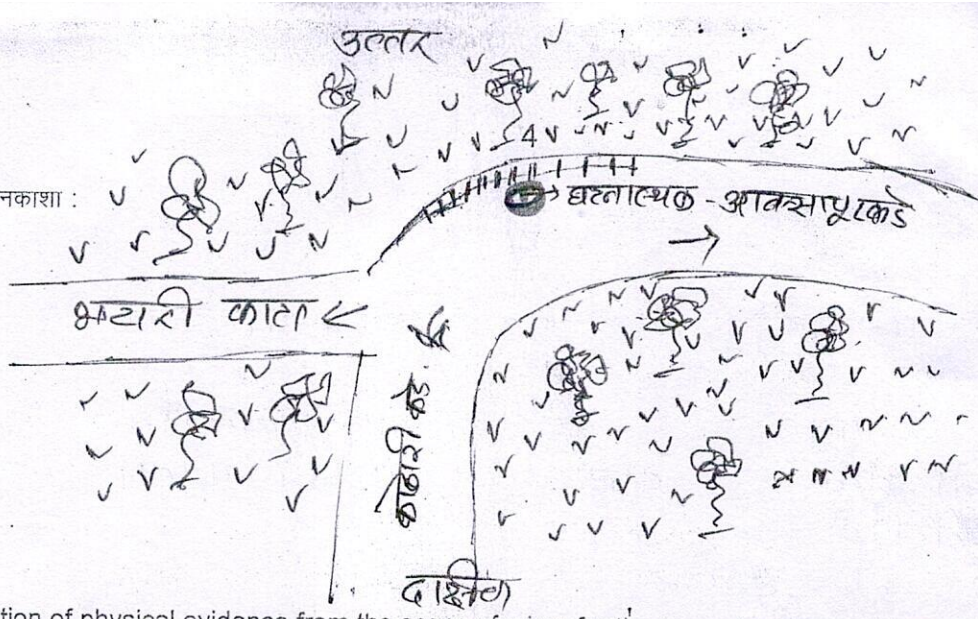 उत्तर
नकाशा :
घटनास्थळ - आक्सापूरकडे
भटारी फाटा
कोठारी कडे
दक्षिण
tion of physical evidence from the scene of